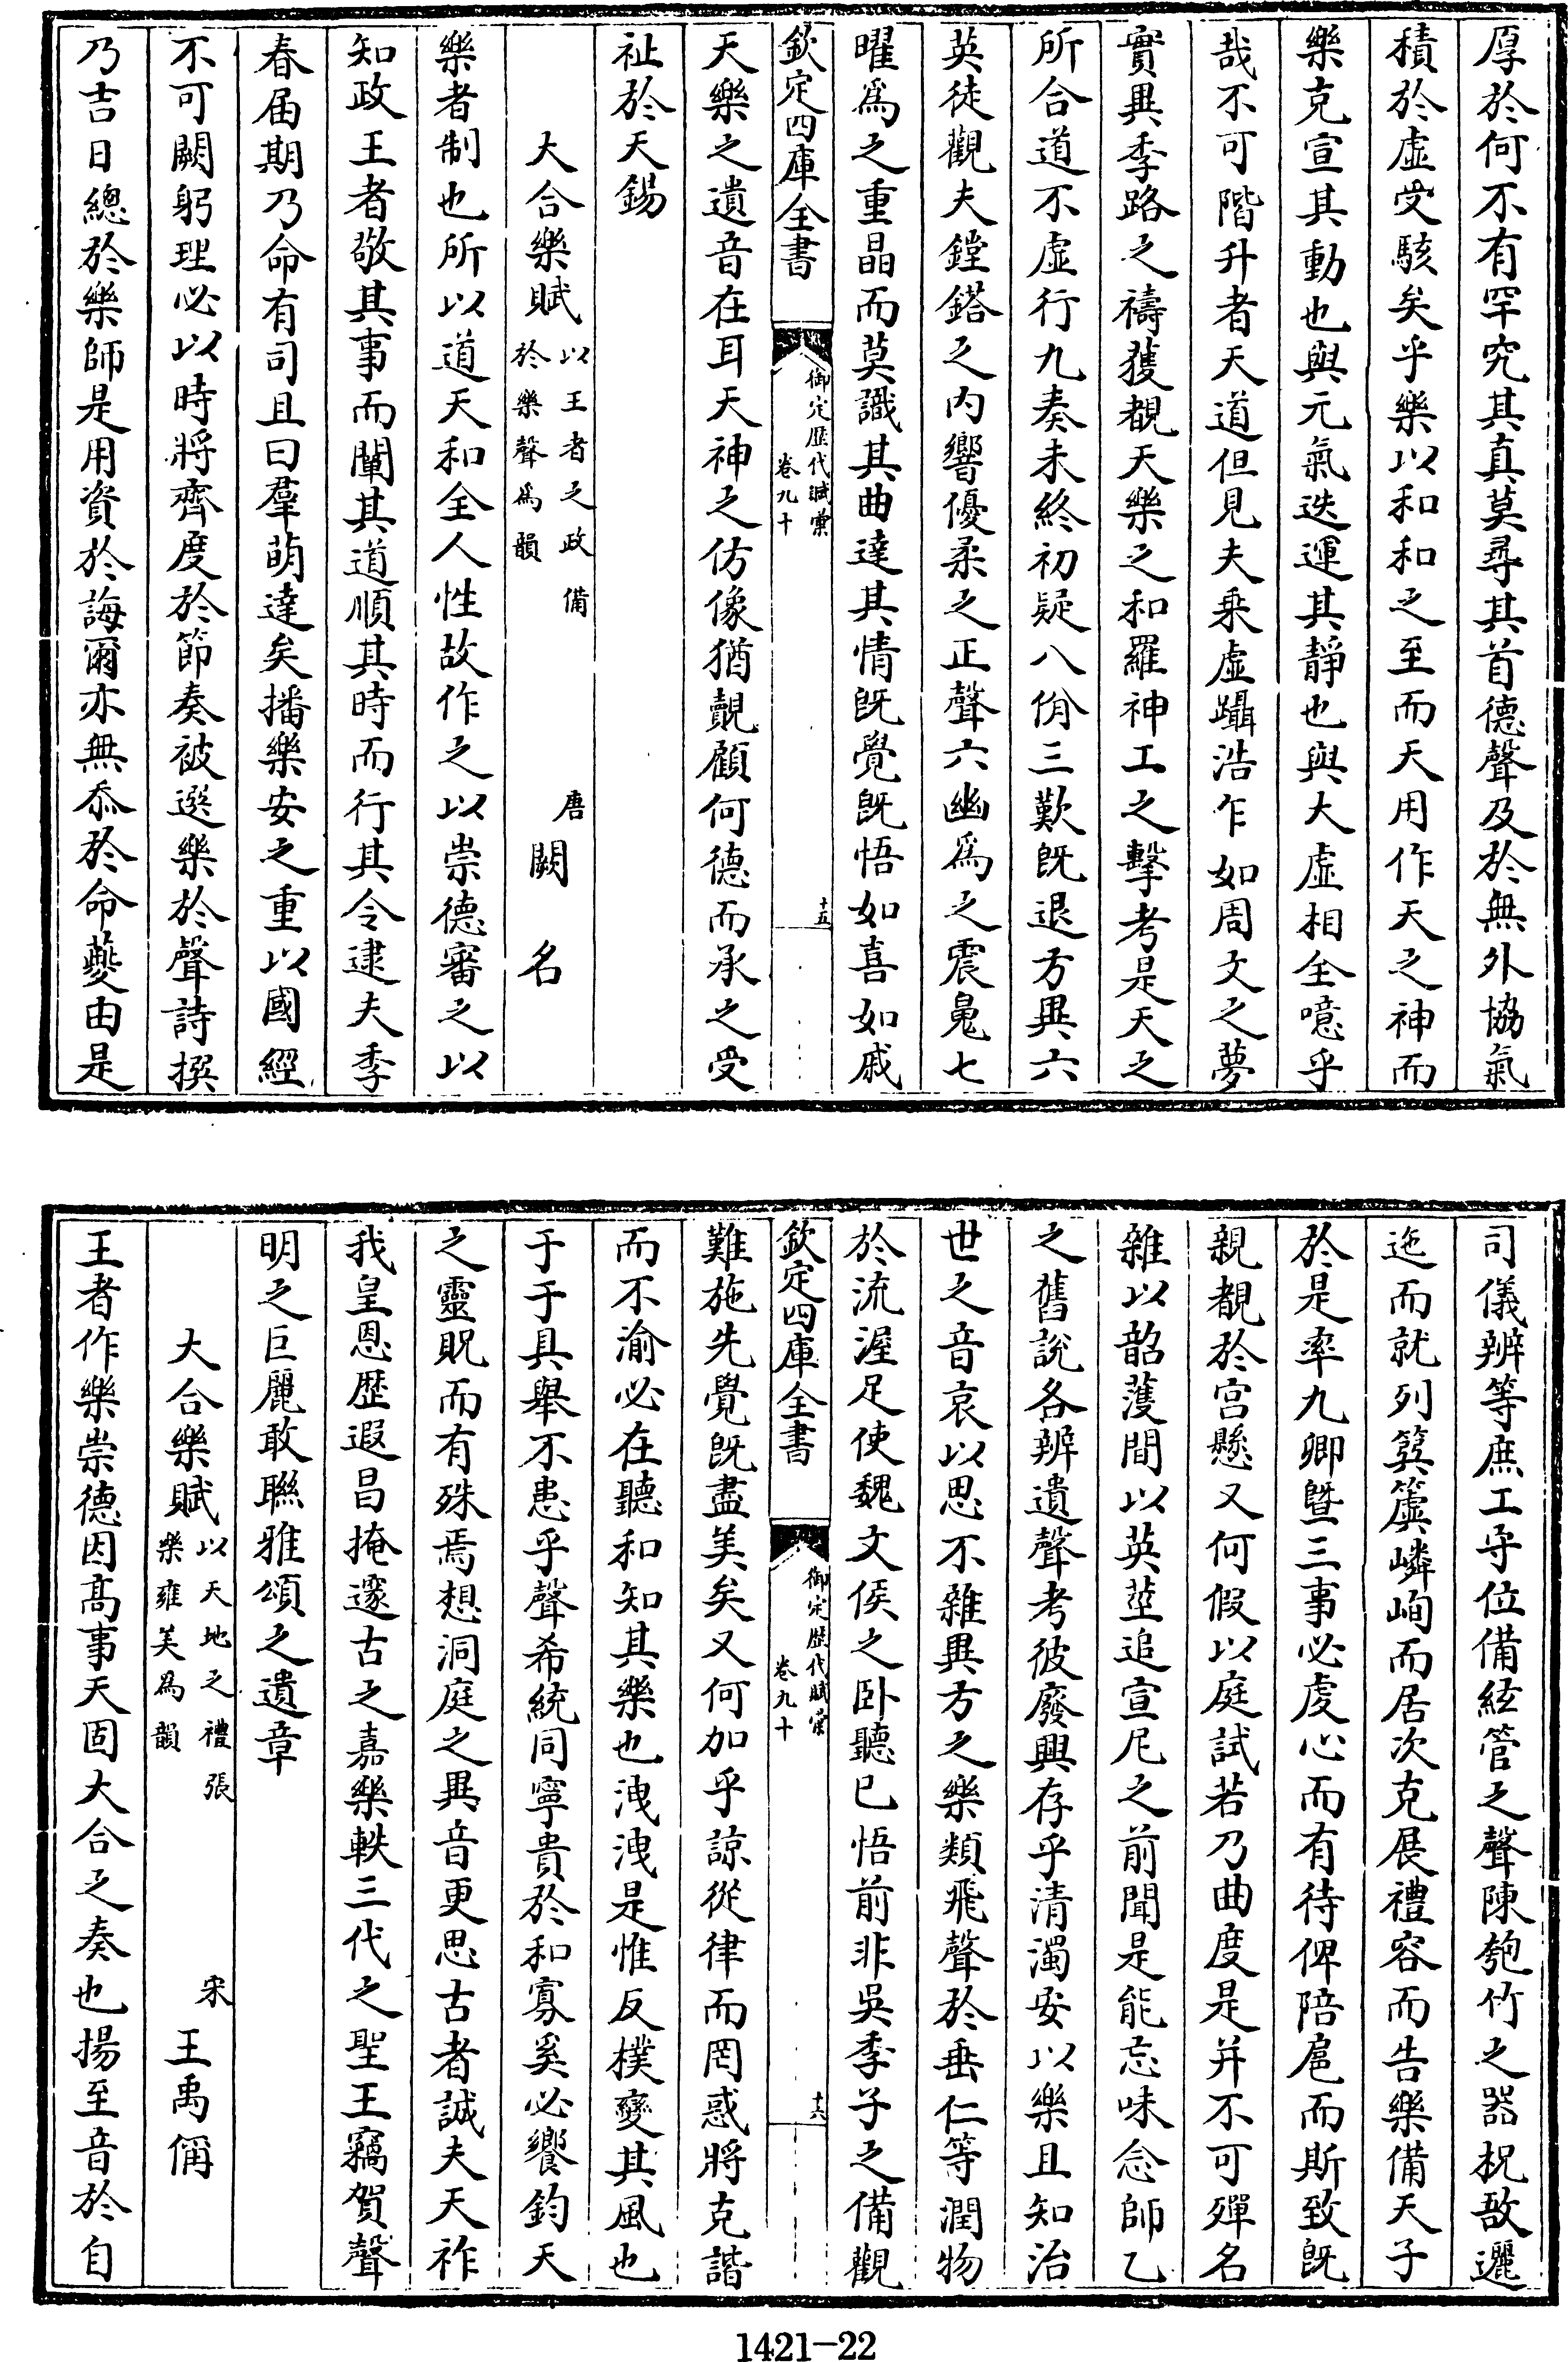 厚於何不有罕究其真莫尋其首德聲及於無外協氣
積於虛受駭矣乎樂以和和之至而天用作天之神而
樂克宣其動也與元氣迭運其靜也與大虛相全噫乎
哉不可階升者天道但見夫乘虛躡浩乍如周文之夢
實異季路之禱獲覩天樂之和羅神工之擊考是天之
所合道不虛行九奏未終初疑八佾三歎既退方異六
英徒觀夫鏜鎝之內響優柔之正聲六幽為之震鬼七
曜為之重晶而莫識其曲達其情既覺既悟如喜如戚
欽定四庫全書
御定歷代賦彙
卷九十
十五
天樂之遺音在耳天神之仿像猶覿顧何德而承之受
祉於天錫
大合樂賦
以王者之政備
於樂聲為韻
唐
闕名
樂者制也所以道天和全人性故作之以崇德審之以
知政王者敬其事而闡其道順其時而行其令逮夫季
春届期乃命有司且曰羣萌達矣播樂安之重以國經
不可闕躬理必以時將齊度於節奏被選樂於聲詩撰
乃吉日總於樂師是用資於誨爾亦無忝於命夔由是
司儀辨等庶工守位備絃管之聲陳匏竹之器柷敔邐
迤而就列簨簴嶙峋而居次克展禮容而告樂備天子
於是率九卿暨三事必虔心而有待俾陪扈而斯致既
親覩於宫懸又何假以庭試若乃曲度是并不可殫名
雜以韶濩間以英莖追宣尼之前聞是能忘味念師乙
之舊說各辨遺聲考彼廢興存乎清濁安以樂且知治
世之音哀以思不雜異方之樂類飛聲於垂仁等潤物
於流渥足使魏文侯之卧聽已悟前非吳季子之備觀
欽定四庫全書
御定歷代賦彙
卷九十
十六
難施先覺既盡美矣又何加乎諒從律而罔惑將克諧
而不渝必在聽和知其樂也洩洩是惟反樸變其風也
于于具舉不患乎聲希統同寧貴於和寡奚必饗鈞天
之靈貺而有殊焉想洞庭之異音更思古者誠夫天祚
我皇恩歴遐昌掩邃古之嘉樂軼三代之聖王竊賀聲
明之巨麗敢聯雅頌之遺章
大合樂賦
以天地之禮張
樂雍美為韻
宋
王禹偁
王者作樂崇德因髙事天固大合之奏也揚至音於自
1421-22